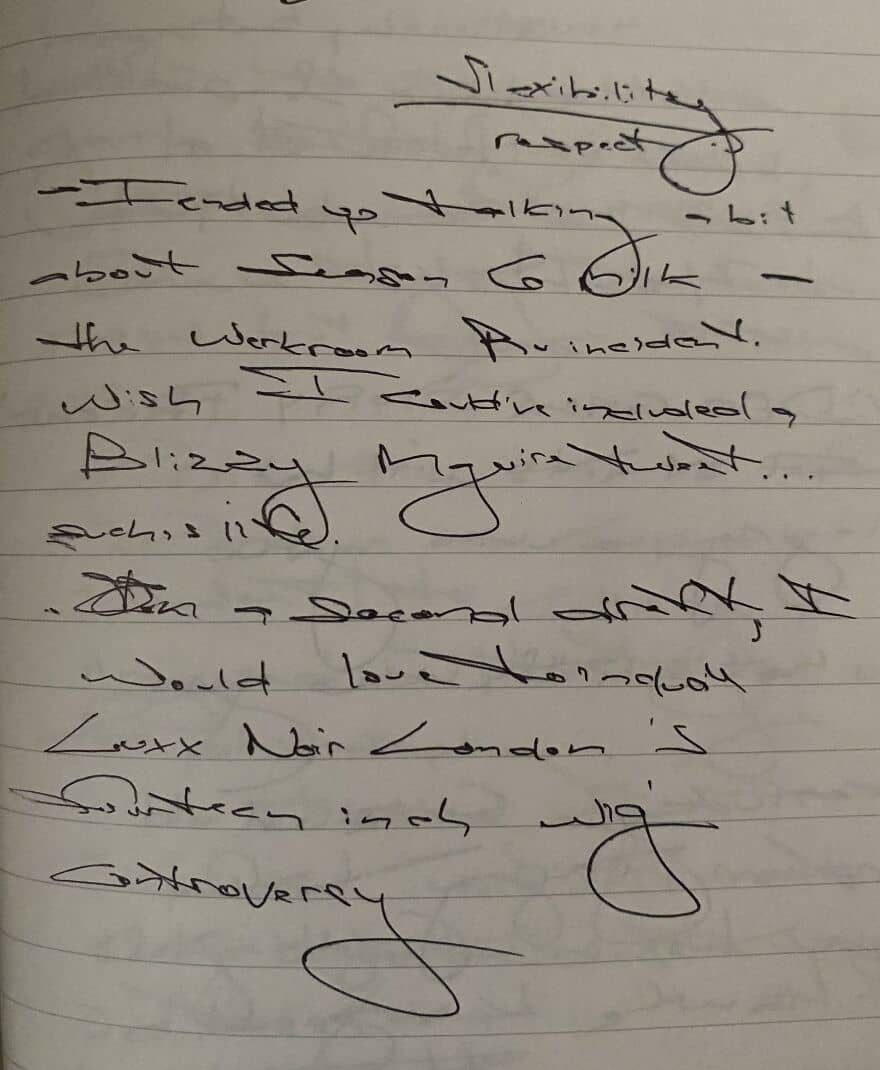 flexibility
respect
- I ended up talking a bit
about Season 6 Milk -
the Werkroom Ru incident.
Wish I could've included a
Blizzy Mguire tweet...
such is life.
. In a second draft, I
would love to include
Luxx Noir London's
fourteen inch wig
controversy